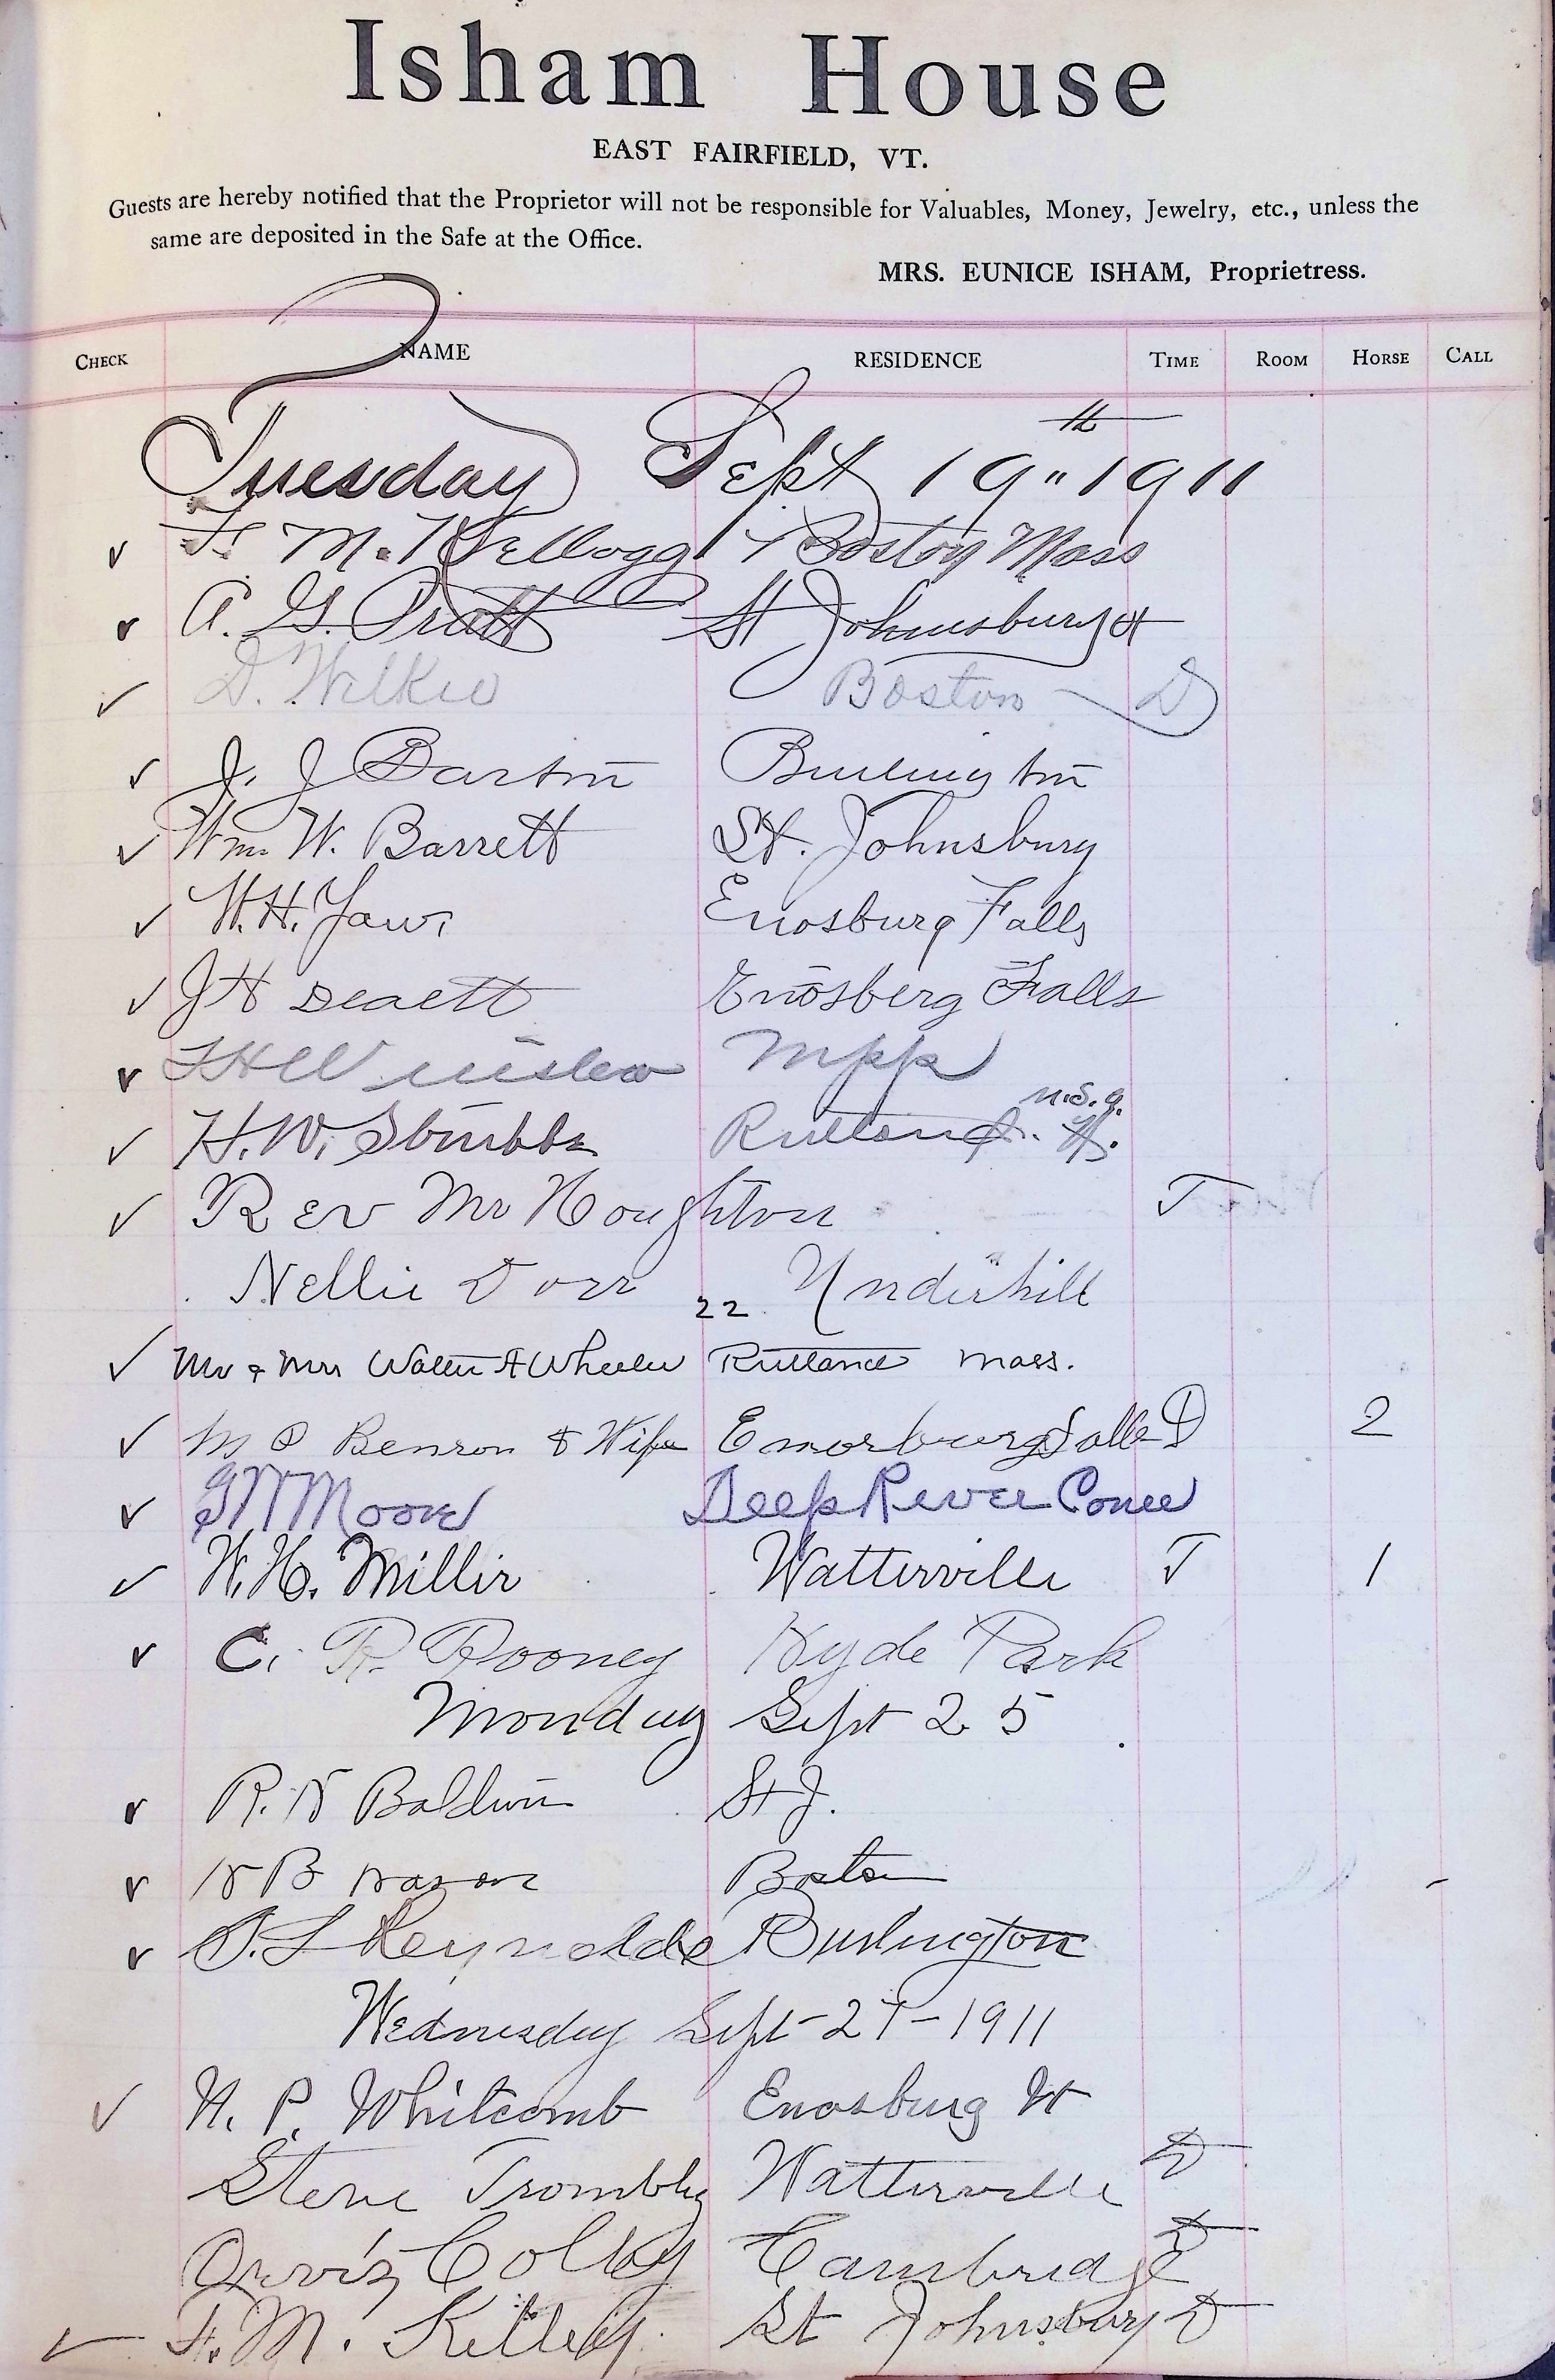 Isham House
EAST FAIRFIELD, VT.
Guests are hereby notified that the Proprietor will not be responsible for Valuables, Money, Jewelry, etc., unless the
same are deposited in the Safe at the Office.
MRS. EUNICE ISHAM, Proprietress.
CHECK NAME RESIDENCE TIME ROOM HORSE CALL
Tuesday Sept 19" 1911 th
F. M. Kellogg Boston Mass
A. G. Pratt St Johnsbury Vt
D. Wilkie Boston D
J. J Barton Burlington
Wm. W. Barrett St. Johnsbury
W. H. Yaw. Enosburg Falls
J H Enosberg Falls
Winslow Mpp
H. W. Stubbs Rutland. Vt. U.S.A.
Rev Mr Houghton T
Nellie Dorr 22 Underhill
Mr & Mrs Walter A Wheeler Rutland Mass.
M P Benson & Wife Enosburg Falls D 2
Moore Deep River Conn
W. H. Miller Watterville T 1
C. R. Rooney Hyde Park
Monday Sept 25
R. H Baldwin St J.
H B Nason Boston
Reynolds Burlington
Wednesday Sept-27-1911
N. P. Whitcomb Enosburg Vt
Steve Trombly Watterville D
Orvis Colby Cambridge D
F. M. Kelley. St Johnsbury D